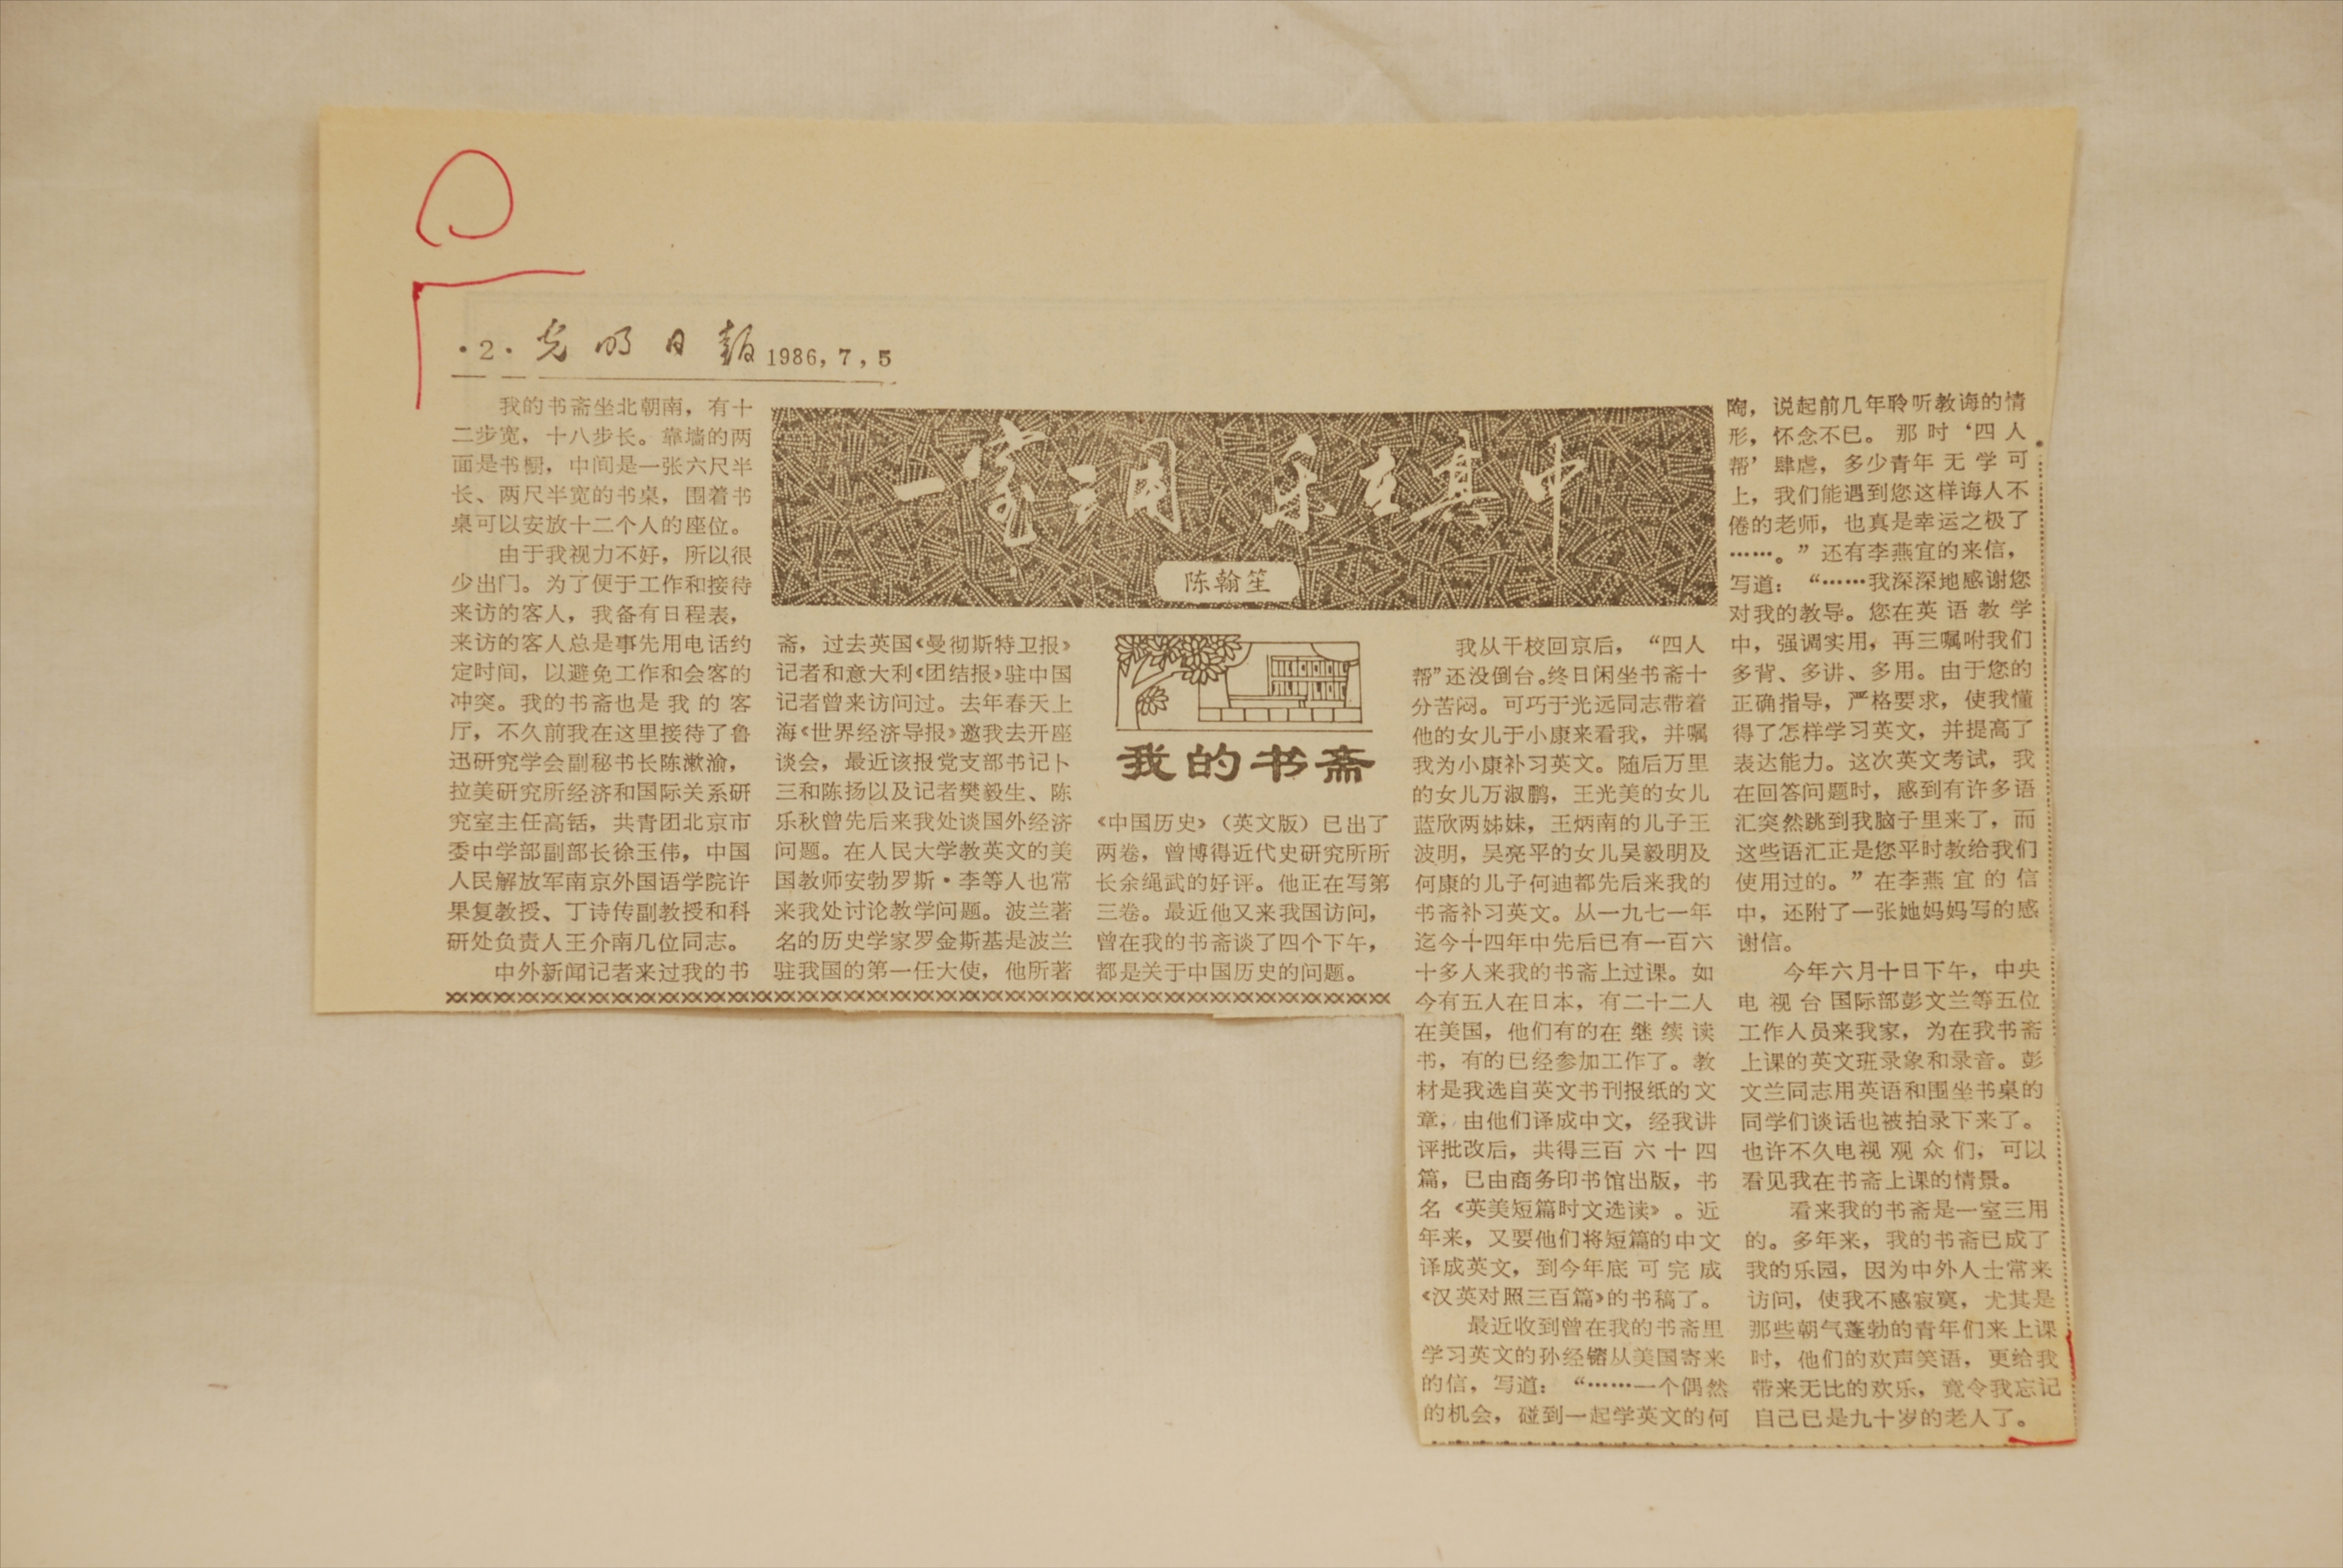 ·2·光明日报1986,7,5
一室三用 乐在其中
陈翰笙
我的书斋坐北朝南，有十
二步宽，十八步长。靠墙的两
面是书橱，中间是一张六尺半
长、两尺半宽的书桌，围着书
桌可以安放十二个人的座位。
由于我视力不好，所以很
少出门。为了便于工作和接待
来访的客人，我备有日程表，
来访的客人总是事先用电话约
定时间，以避免工作和会客的
冲突。我的书斋也是我的客
厅，不久前我在这里接待了鲁
迅研究学会副秘书长陈漱渝，
拉美研究所经济和国际关系研
究室主任高铦，共青团北京市
委中学部副部长徐玉伟，中国
人民解放军南京外国语学院许
果复教授、丁诗传副教授和科
研处负责人王介南几位同志。
中外新闻记者来过我的书
斋，过去英国《曼彻斯特卫报》
记者和意大利《团结报》驻中国
记者曾来访问过。去年春天上
海《世界经济导报》邀我去开座
谈会，最近该报党支部书记卜
三和陈扬以及记者樊毅生、陈
乐秋曾先后来我处谈国外经济
问题。在人民大学教英文的美
国教师安勃罗斯·李等人也常
来我处讨论教学问题。波兰著
名的历史学家罗金斯基是波兰
驻我国的第一任大使，他所著
我的书斋
《中国历史》（英文版）已出了
两卷，曾博得近代史研究所所
长余绳武的好评。他正在写第
三卷。最近他又来我国访问，
曾在我的书斋谈了四个下午，
都是关于中国历史的问题。
我从干校回京后，“四人
帮”还没倒台。终日闲坐书斋十
分苦闷。可巧于光远同志带着
他的女儿于小康来看我，并嘱
我为小康补习英文。随后万里
的女儿万淑鹏，王光美的女儿
蓝欣两姊妹，王炳南的儿子王
波明，吴亮平的女儿吴毅明及
何康的儿子何迪都先后来我的
书斋补习英文。从一九七一年
迄今十四年中先后已有一百六
十多人来我的书斋上过课。如
今有五人在日本，有二十二人
在美国，他们有的在继续读
书，有的已经参加工作了。教
材是我选自英文书刊报纸的文
章，由他们译成中文，经我讲
评批改后，共得三百六十四
篇，已由商务印书馆出版，书
名《英美短篇时文选读》。近
年来，又要他们将短篇的中文
译成英文，到今年底可完成
《汉英对照三百篇》的书稿了。
最近收到曾在我的书斋里
学习英文的孙经镕从美国寄来
的信，写道：“……一个偶然
的机会，碰到一起学英文的何
陶，说起前几年聆听教诲的情
形，怀念不已。那时‘四人
帮’肆虐，多少青年无学可
上，我们能遇到您这样诲人不
倦的老师，也真是幸运之极了
……。”还有李燕宜的来信，
写道：“……我深深地感谢您
对我的教导。您在英语教学
中，强调实用，再三嘱咐我们
多背、多讲、多用。由于您的
正确指导，严格要求，使我懂
得了怎样学习英文，并提高了
表达能力。这次英文考试，我
在回答问题时，感到有许多语
汇突然跳到我脑子里来了，而
这些语汇正是您平时教给我们
使用过的。”在李燕宜的信
中，还附了一张她妈妈写的感
谢信。
今年六月十日下午，中央
电视台国际部彭文兰等五位
工作人员来我家，为在我书斋
上课的英文班录象和录音。彭
文兰同志用英语和围坐书桌的
同学们谈话也被拍录下来了。
也许不久电视观众们，可以
看见我在书斋上课的情景。
看来我的书斋是一室三用
的。多年来，我的书斋已成了
我的乐园，因为中外人士常来
访问，使我不感寂寞，尤其是
那些朝气蓬勃的青年们来上课
时，他们的欢声笑语，更给我
带来无比的欢乐，竟令我忘记
自己已是九十岁的老人了。